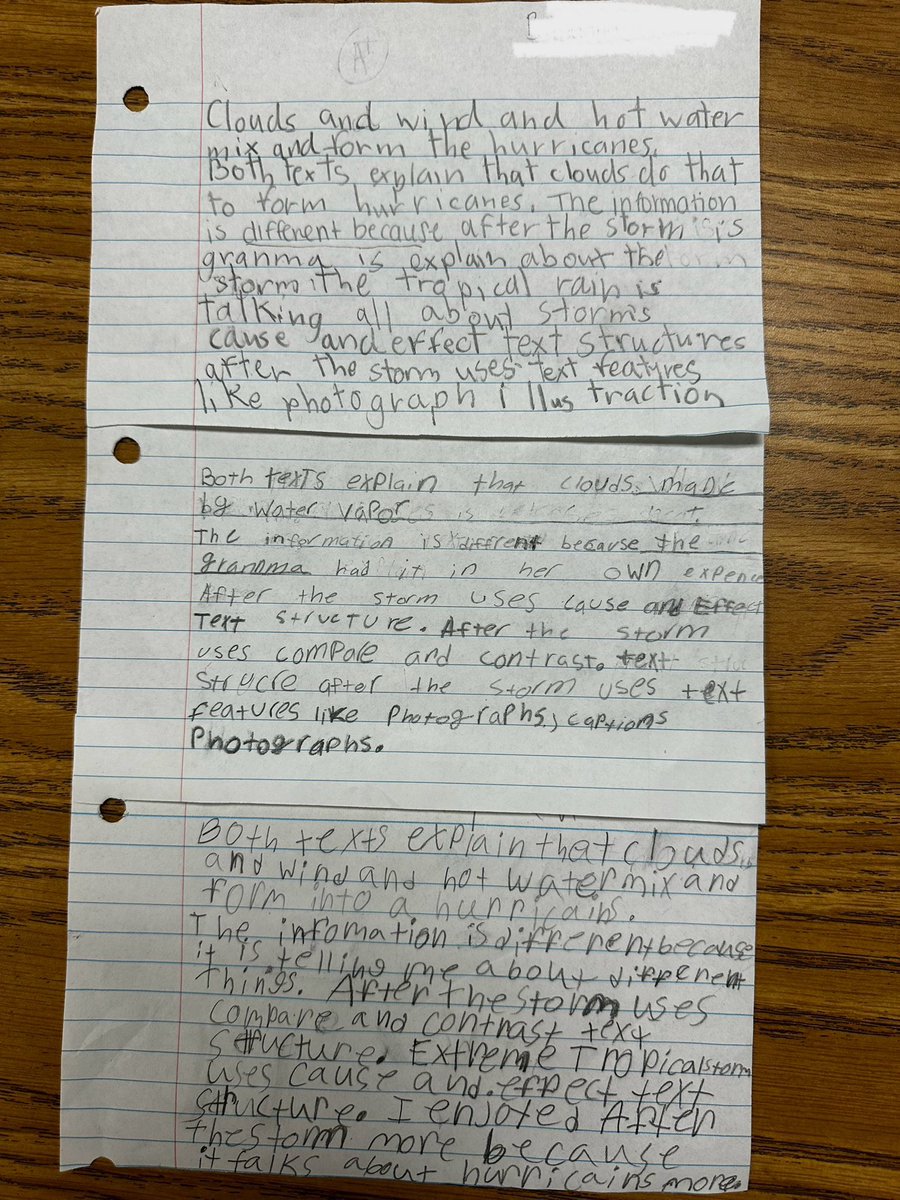 A+
Clouds and wind and hot water
mix and form the hurricanes.
Both texts explain that clouds do that
to form hurricanes. The information
is different because after the storm is
granma is explain about the
storm. the tropical rain is
talking all about storms
cause and effect text structures
after the storm uses text features
like photograph illustraction
Both texts explain that clouds made
by water vapor
The information is different because the
grandma had it in her own expence
After the storm uses cause and Effect
Text structure. After the storm
uses compare and contrast. text
strucre after the storm uses text
features like Photographs, captions
Photographs.
Both texts explain that clouds
and wind and hot water mix and
form into a hurricains.
The infomation is different because
it is telling me about different
things. After the storm uses
compare and contrast text
structure. Extreme Tropical storm
uses cause and effect text
structure. I enjoyed After
the storm more because
it talks about hurricains more.